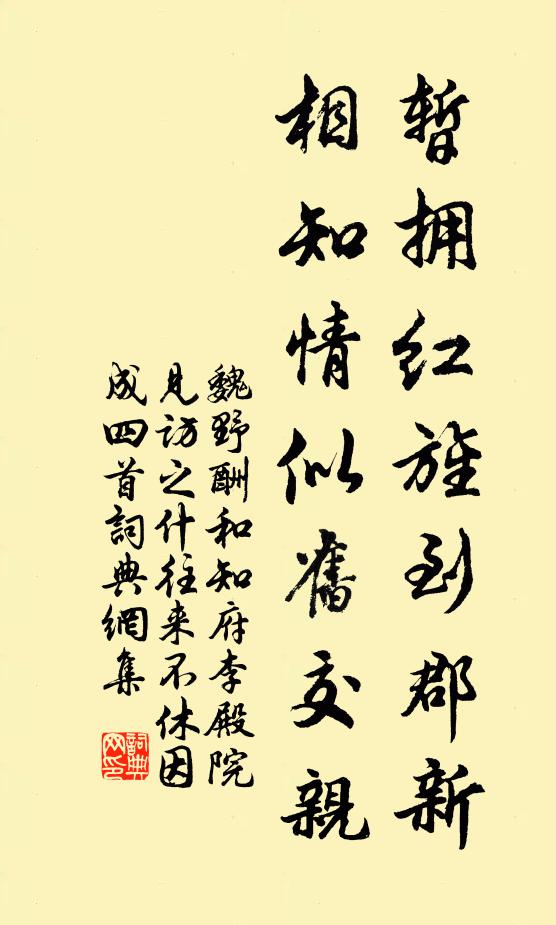 暫拥红旌到郡新
相知情似舊交親
魏野酬和知府李殿院
見访之什往来不休因
成四首詞典網集
詞典网印